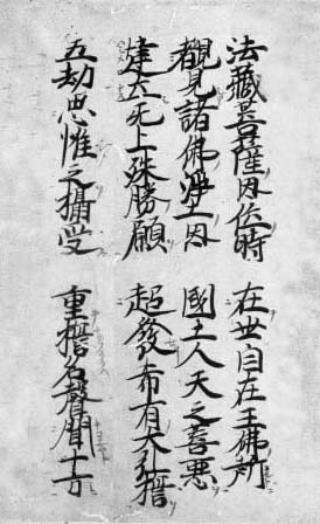 法藏菩薩因位時　在世自在王佛所
覩見諸佛淨土因　國土人天之善惡
建立无上殊勝願　超發希有大弘誓
五劫思惟之攝受　重誓名聲聞十方